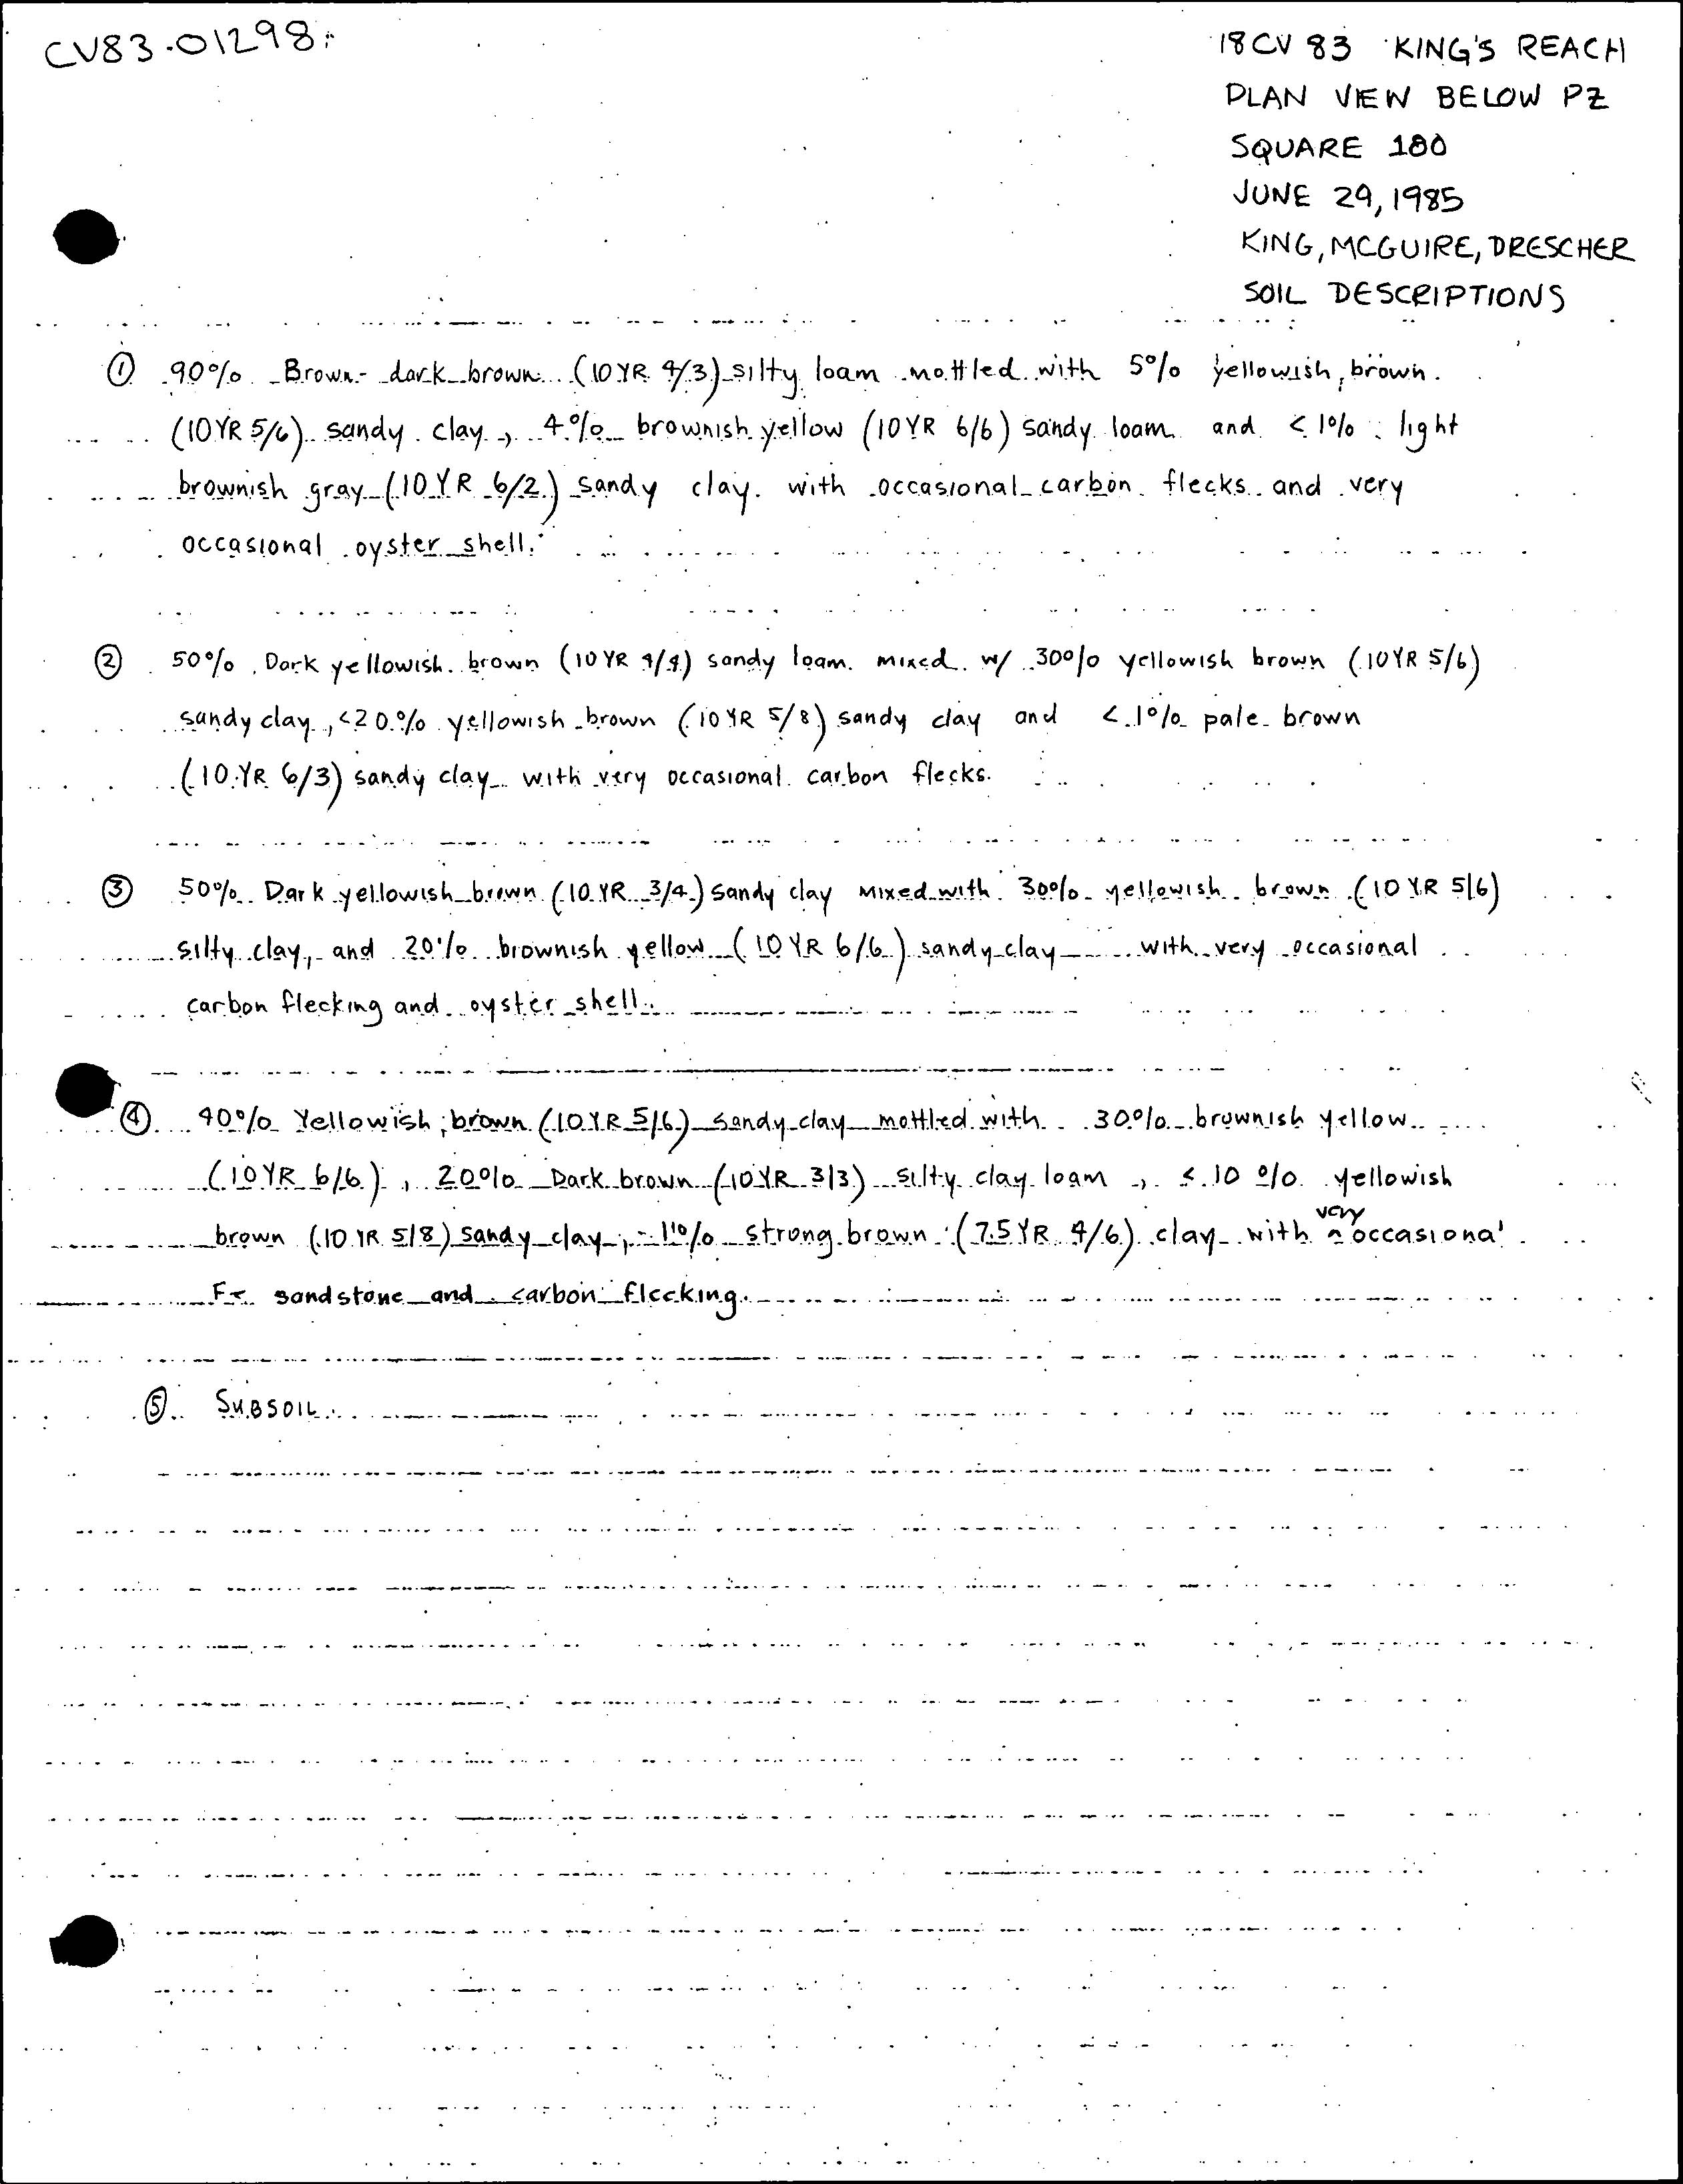 CV83-01298
18 CV 83 KING'S REACH
PLAN VIEW BELOW PZ
SQUARE 180
JUNE 29, 1985
KING, MCGUIRE, DRESCHER
SOIL DESCRIPTIONS
① 90% Brown-dark brown (10YR 4/3) silty loam mottled with 5% yellowish brown
(10YR 5/6) sandy clay, 4% brownish yellow (10YR 6/6) sandy loam and <1% light
brownish gray (10YR 6/2) sandy clay with occasional carbon flecks and very
occasional oyster shell.
② 50% Dark yellowish brown (10YR 4/4) sandy loam mixed w/ 30% yellowish brown (10YR 5/6)
sandy clay, <20% yellowish brown (10YR 5/8) sandy clay and <1% pale brown
(10YR 6/3) sandy clay with very occasional carbon flecks.
③ 50% Dark yellowish brown (10YR 3/4) sandy clay mixed with 30% yellowish brown (10YR 5/6)
silty clay, and 20% brownish yellow (10YR 6/6) sandy clay with very occasional
carbon flecking and oyster shell.
④ 40% Yellowish brown (10YR 5/6) sandy clay mottled with 30% brownish yellow
(10YR 6/6), 20% Dark brown (10YR 3/3) silty clay loam, ≤10% yellowish
brown (10YR 5/8) sandy clay, 1% strong brown (7.5YR 4/6) clay with very occasional
Fe sandstone and carbon flecking.
⑤ SUBSOIL